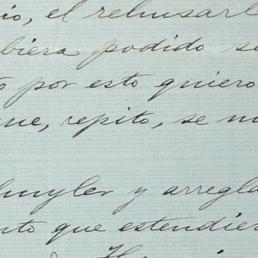 io, el rehusarl
biera podido se
o por esto quiero
ue, repito, se m
huyler y arregla
nto que estendies